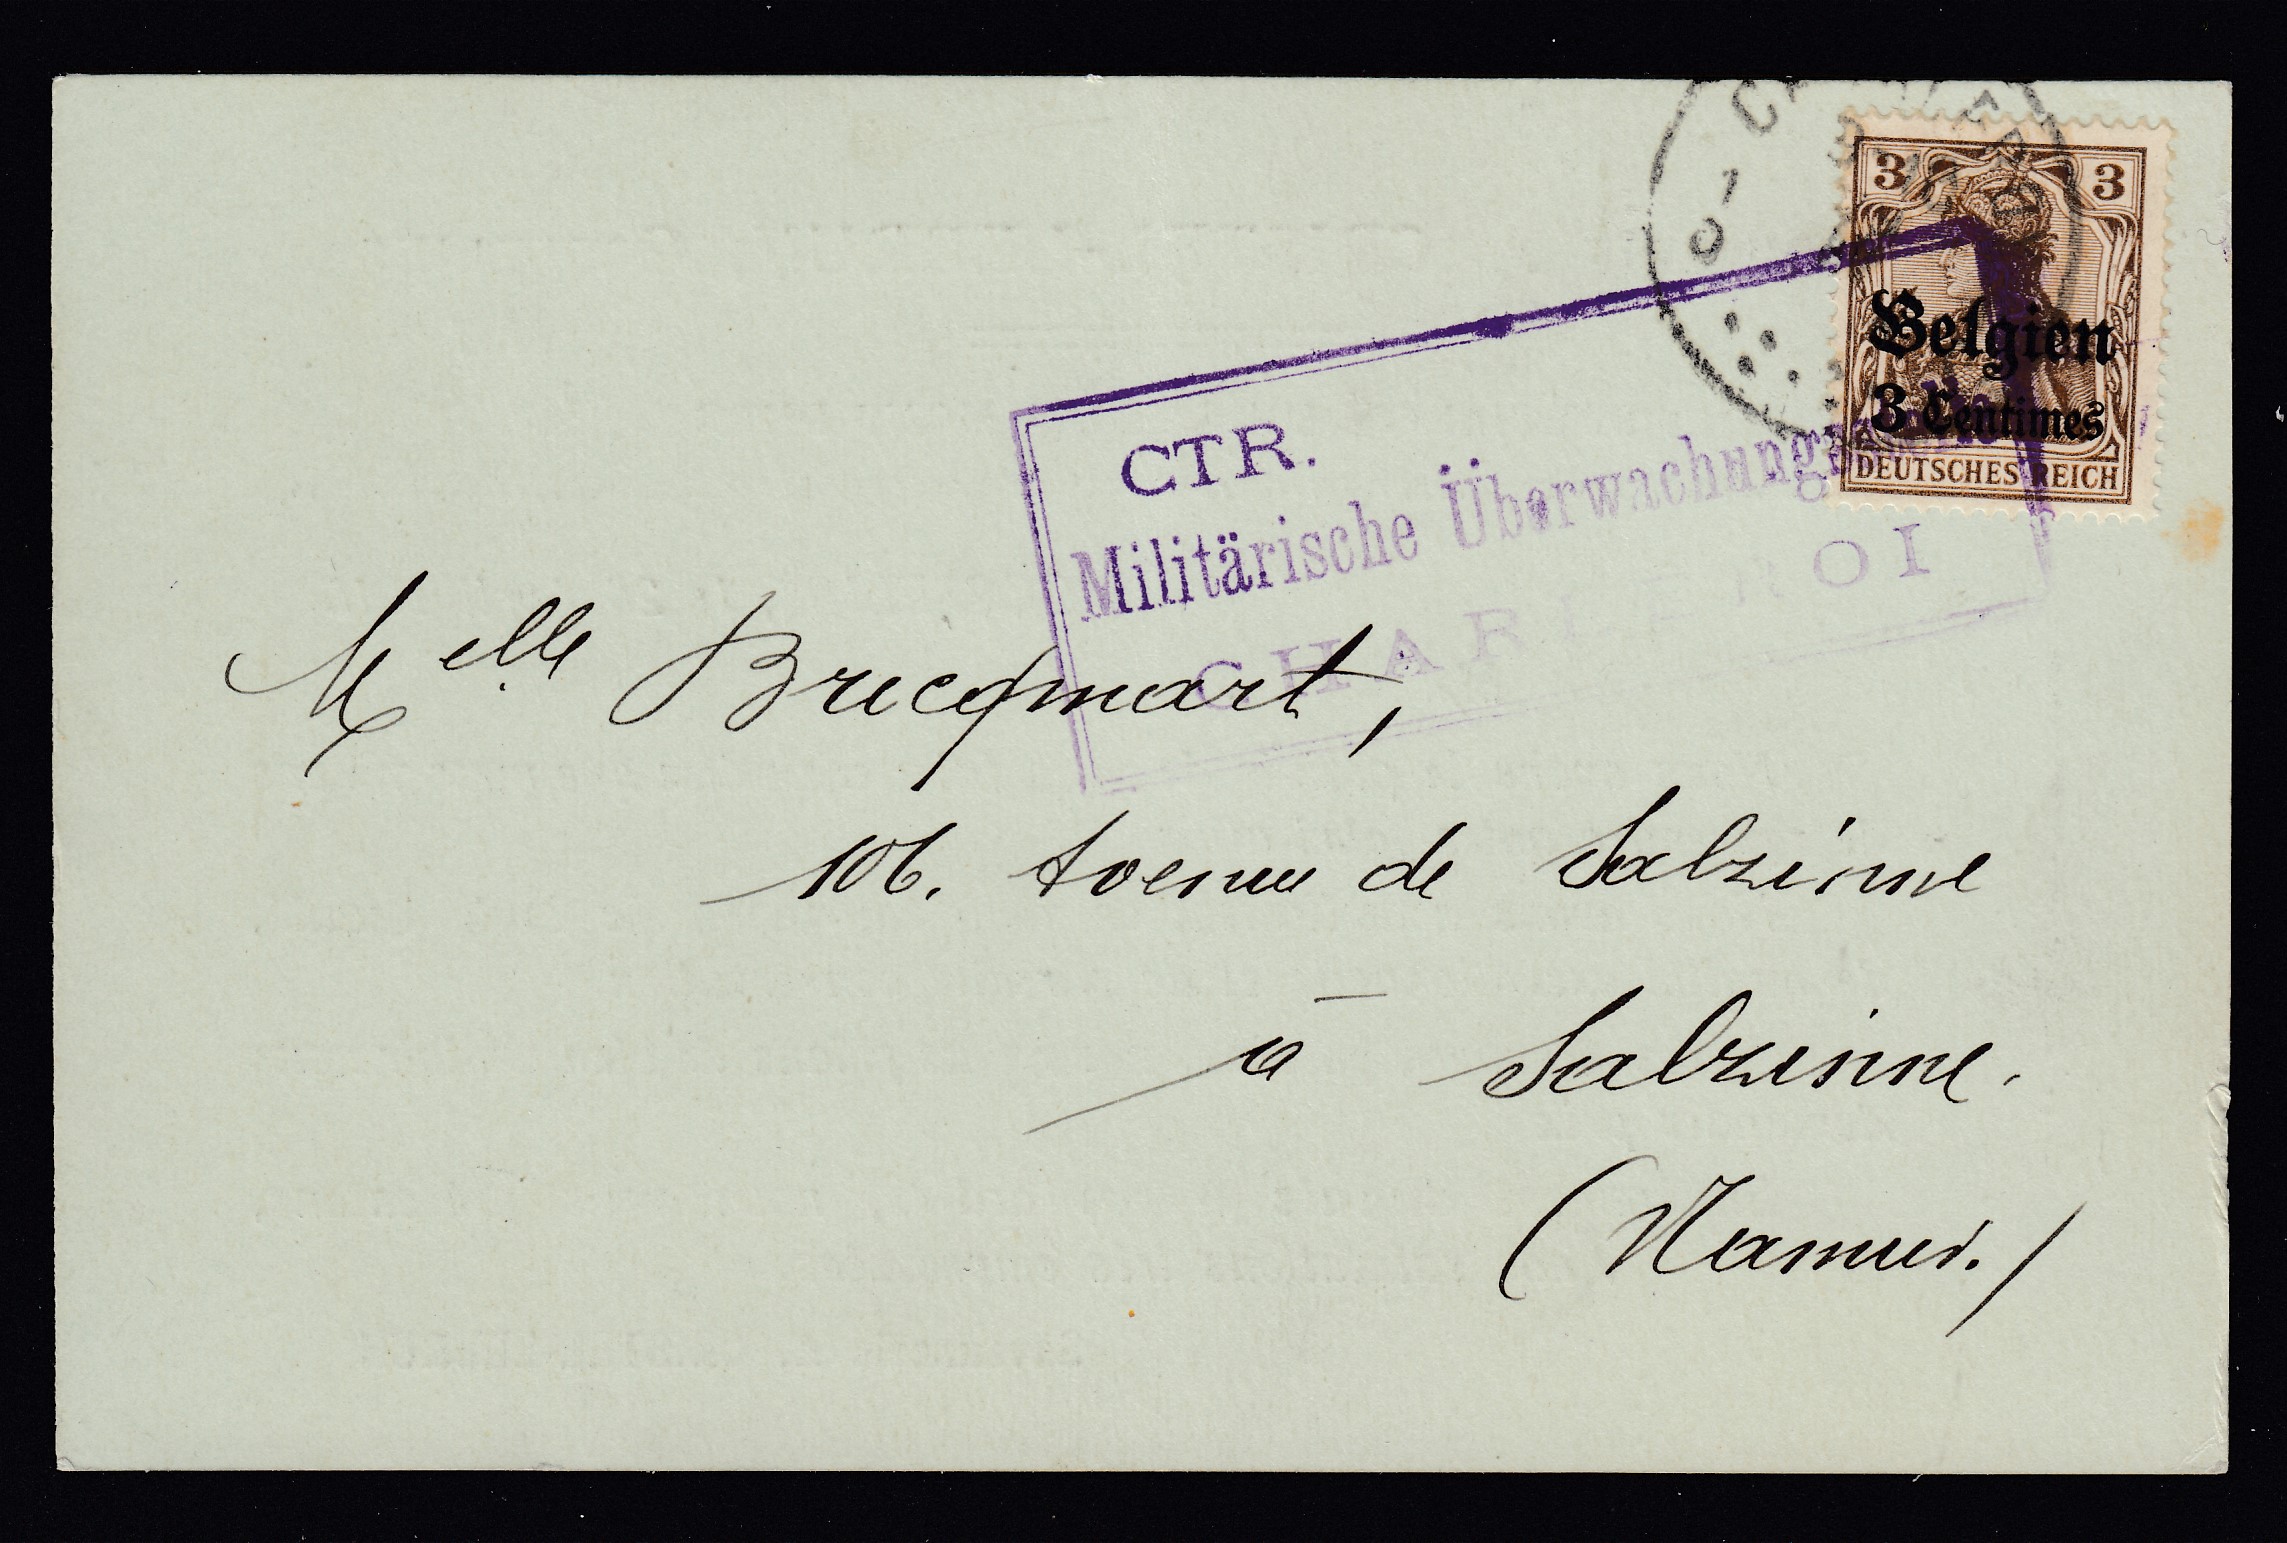 3 3
Belgien
3 Centimes
DEUTSCHES REICH
10-1
CTR.
Militärische
CHARLEROI
Melle Bricqmart,
106. Avenue de Salzinne
à Salzinne.
(Namur.)